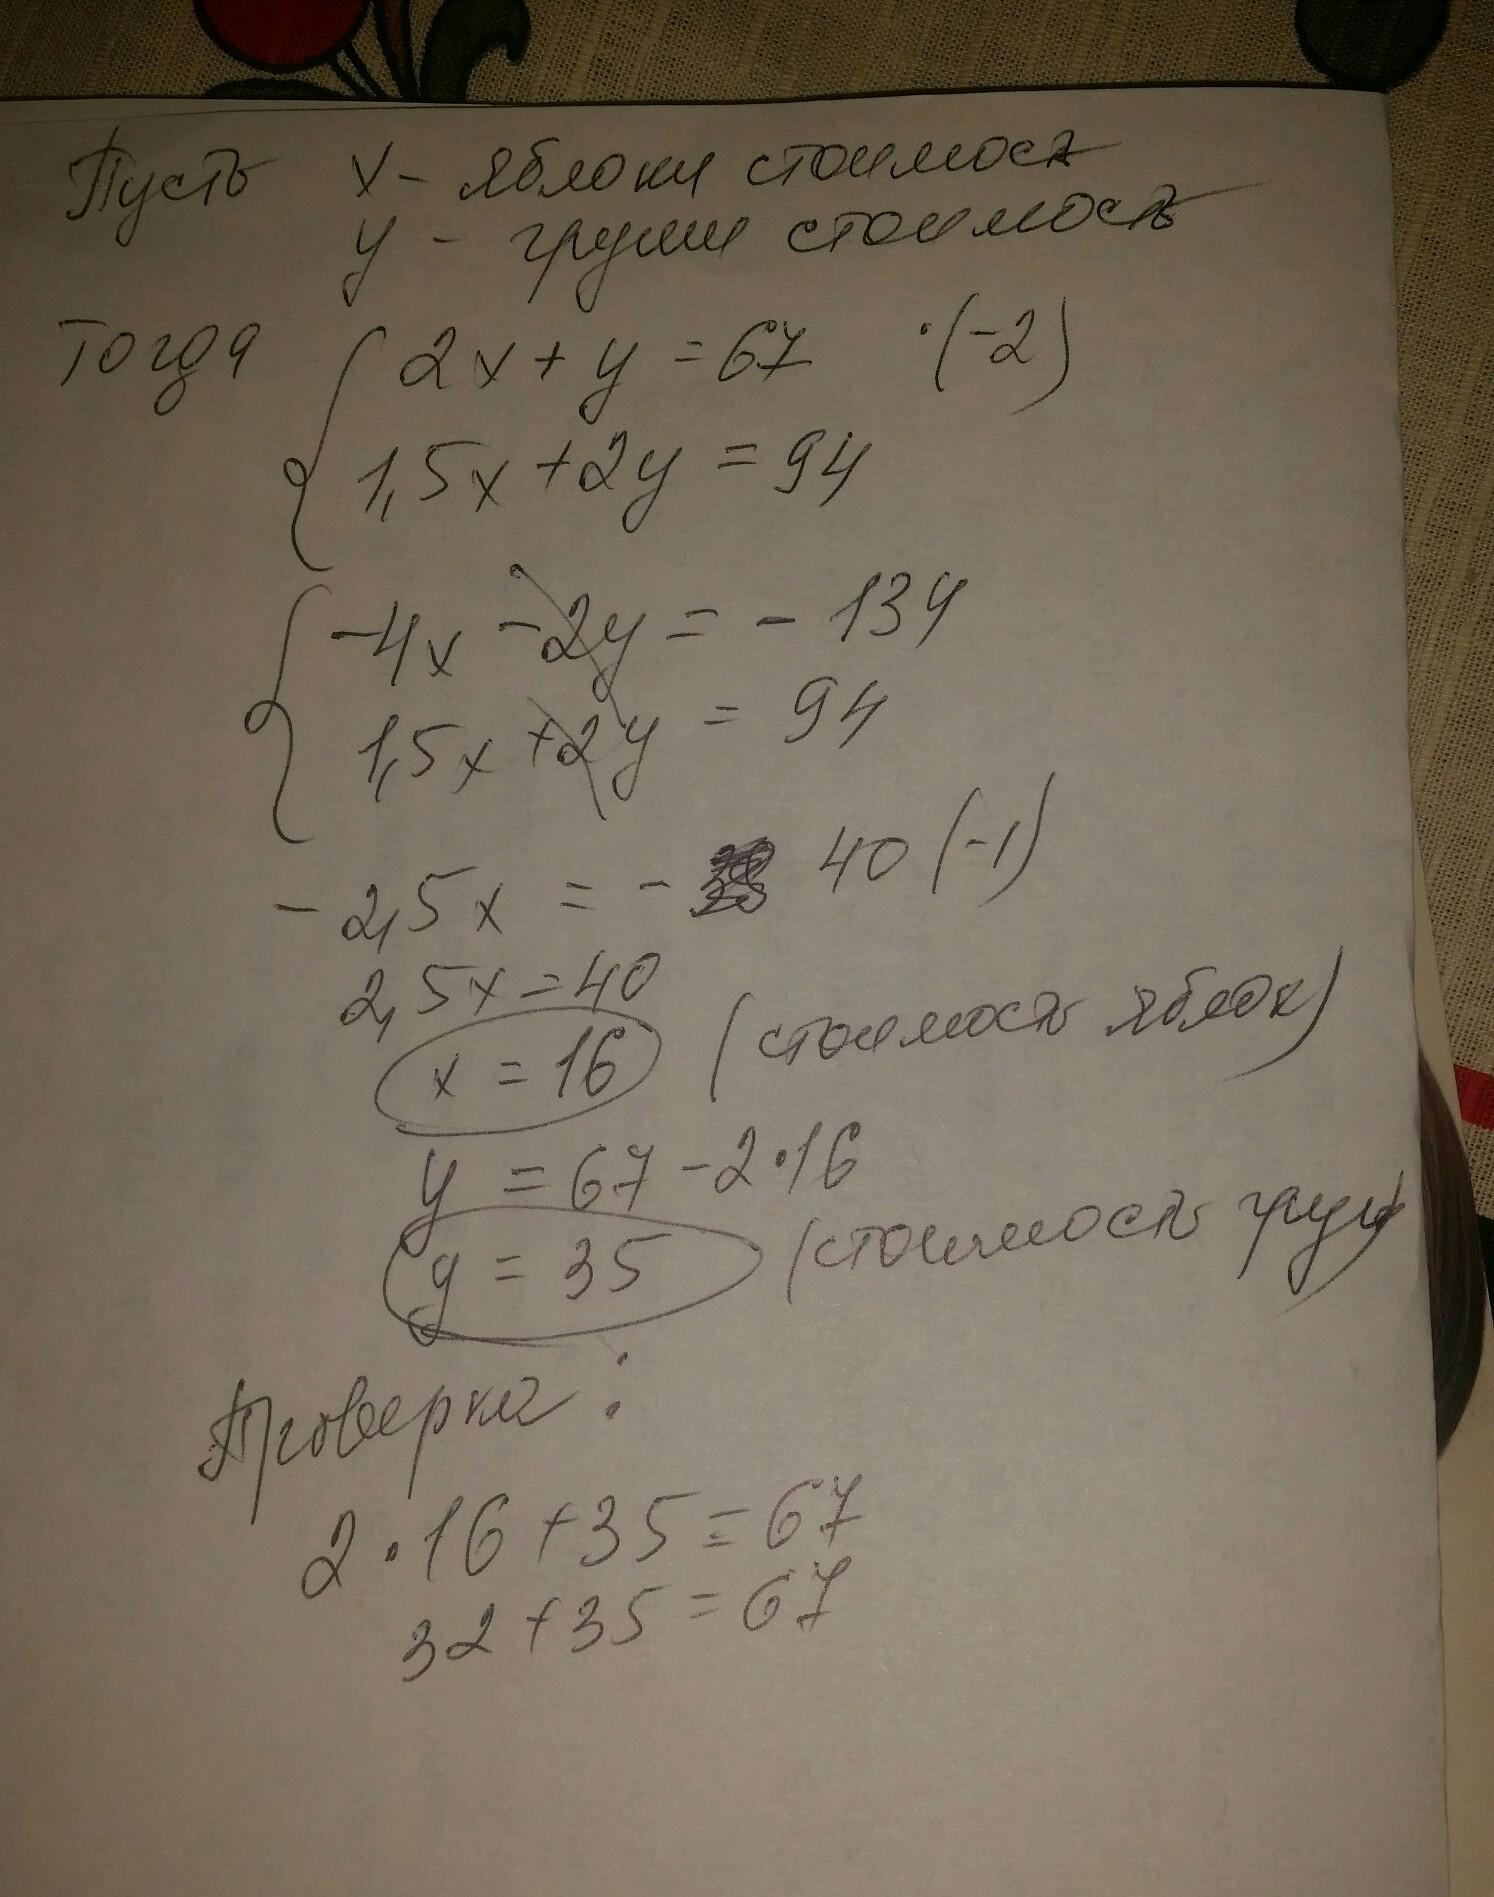 Пусть x - яблоки стоимость
y - груши стоимость
Тогда 2x + y = 67 ·(-2)
1,5x + 2y = 94
-4x - 2y = - 134
1,5x + 2y = 94
- 2,5x = - 40 (-1)
2,5x = 40
x = 16 (стоимость яблок)
y = 67 - 2·16
y = 35 (стоимость груш)
Проверка:
2·16 + 35 = 67
32 + 35 = 67